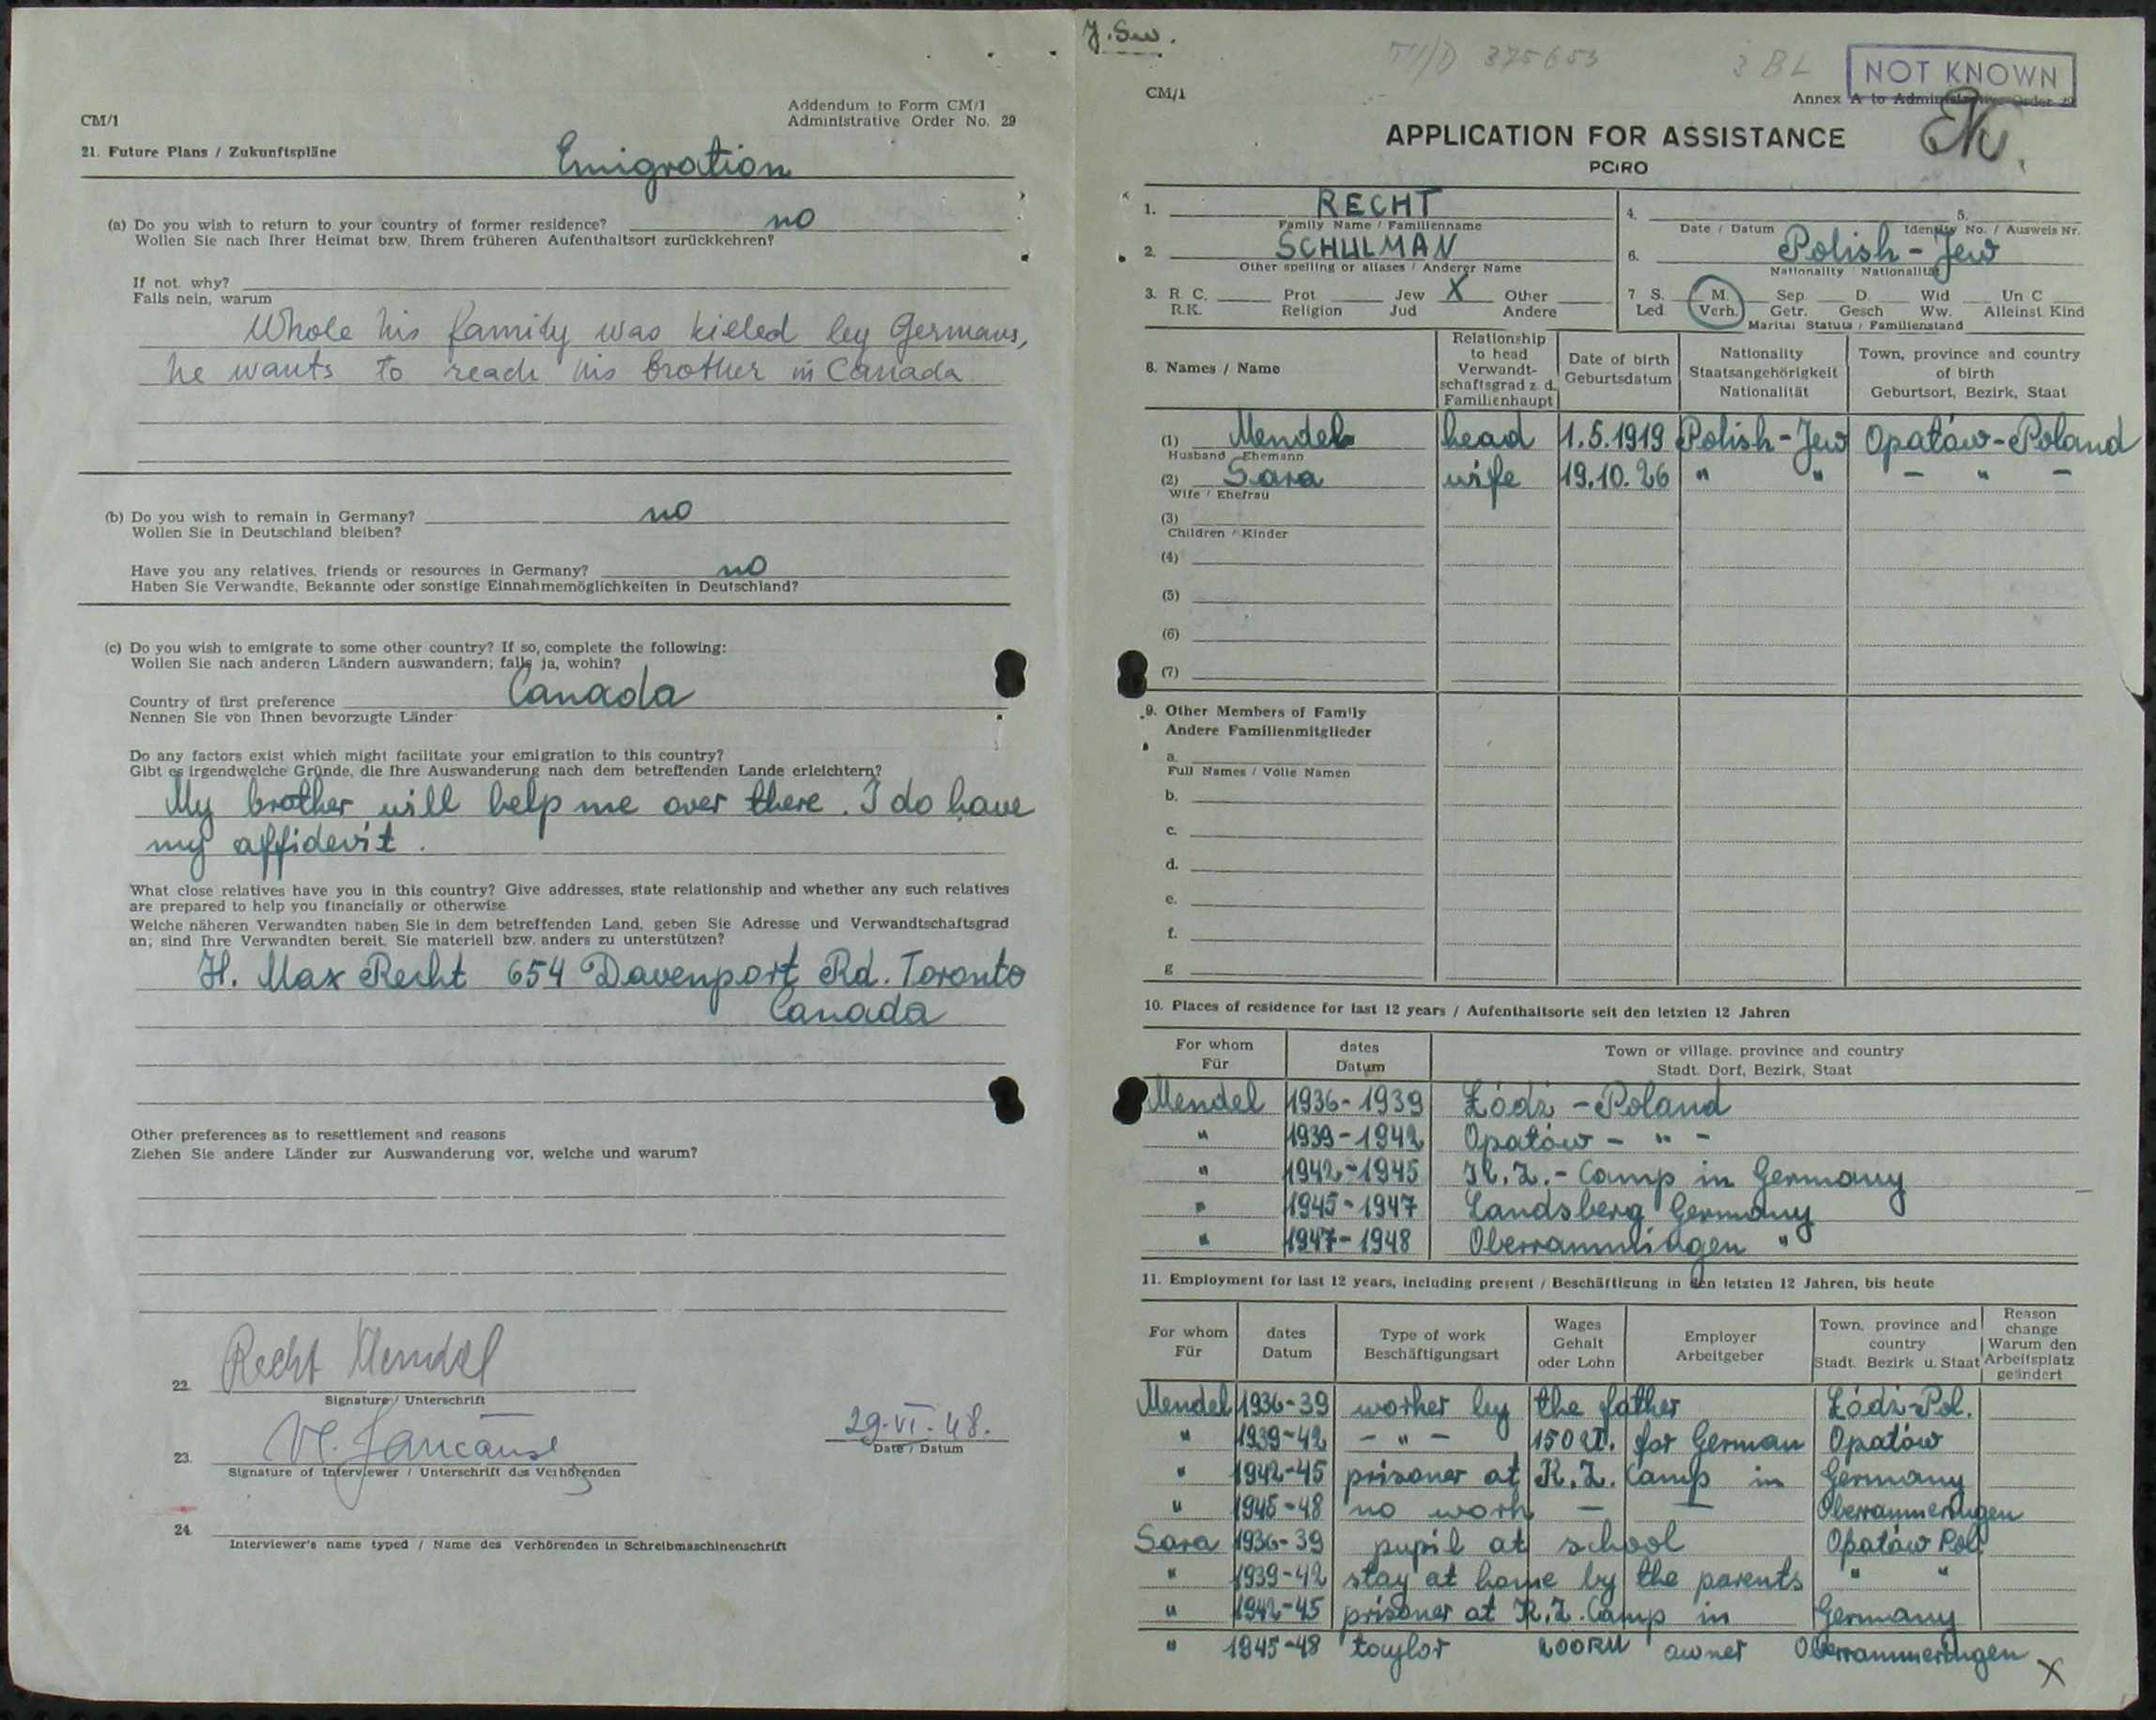 CM/1
Addendum to Form CM/1
Administrative Order No. 29
21. Future Plans / Zukunftspläne Emigration
(a) Do you wish to return to your country of former residence? no
Wollen Sie nach Ihrer Heimat bzw. Ihrem früheren Aufenthaltsort zurückkehren?
If not. why?
Falls nein, warum
Whole his family was killed by Germans,
he wants to reach his brother in Canada
(b) Do you wish to remain in Germany? no
Wollen Sie in Deutschland bleiben?
Have you any relatives, friends or resources in Germany? no
Haben Sie Verwandte, Bekannte oder sonstige Einnahmemöglichkeiten in Deutschland?
(c) Do you wish to emigrate to some other country? If so, complete the following:
Wollen Sie nach anderen Ländern auswandern; falls ja, wohin?
Country of first preference Canada
Nennen Sie von Ihnen bevorzugte Länder
Do any factors exist which might facilitate your emigration to this country?
Gibt es irgendwelche Gründe, die Ihre Auswanderung nach dem betreffenden Lande erleichtern?
My brother will help me over there. I do have
my affidevit.
What close relatives have you in this country? Give addresses, state relationship and whether any such relatives
are prepared to help you financially or otherwise
Welche näheren Verwandten haben Sie in dem betreffenden Land, geben Sie Adresse und Verwandtschaftsgrad
an; sind Ihre Verwandten bereit, Sie materiell bzw. anders zu unterstützen?
H. Max Recht 654 Davenport Rd. Toronto
Canada
Other preferences as to resettlement and reasons
Ziehen Sie andere Länder zur Auswanderung vor, welche und warum?
22. Recht Mendel
Signature / Unterschrift
23.
Signature of Interviewer / Unterschrift des Verhörenden
29.VI.48.
Date / Datum
24.
Interviewer's name typed / Name des Verhörenden in Schreibmaschinenschrift
J. Sw.
375653
3 BL
NOT KNOWN
CM/1
Annex A to Administrative Order 29
APPLICATION FOR ASSISTANCE
PCIRO
1. RECHT
Family Name / Familienname
4. Date / Datum
5. Identity No. / Ausweis Nr.
2. SCHULMAN
Other spelling or aliases / Anderer Name
6. Polish - Jew
Nationality Nationalität
3. R. C. Prot Jew X Other
R.K. Religion Jud Andere
7 S. M. Sep. D. Wid Un C
Led. Verh. Getr. Gesch Ww. Alleinst Kind
Marital Status / Familienstand
8. Names / Name
Relationship to head Verwandtschaftsgrad z. d. Familienhaupt
Date of birth Geburtsdatum
Nationality Staatsangehörigkeit Nationalität
Town, province and country of birth Geburtsort, Bezirk, Staat
(1) Mendel head 1.5.1919 Polish-Jew Opatów-Poland
Husband Ehemann
(2) Sara wife 19.10.26 " " - " -
Wife / Ehefrau
(3)
Children / Kinder
(4)
(5)
(6)
(7)
9. Other Members of Family
Andere Familienmitglieder
a.
Full Names / Volle Namen
b.
c.
d.
e.
f.
g
10. Places of residence for last 12 years / Aufenthaltsorte seit den letzten 12 Jahren
For whom Für
dates Datum
Town or village, province and country Stadt. Dorf, Bezirk, Staat
Mendel 1936-1939 Łódź - Poland
" 1939-1942 Opatów - " -
" 1942-1945 K.Z.- Camp in Germany
" 1945-1947 Landsberg Germany
" 1947-1948 Oberrammingen "
11. Employment for last 12 years, including present / Beschäftigung in den letzten 12 Jahren, bis heute
For whom Für
dates Datum
Type of work Beschäftigungsart
Wages Gehalt oder Lohn
Employer Arbeitgeber
Town, province and country Stadt. Bezirk u. Staat
Reason change Warum den Arbeitsplatz geändert
Mendel 1936-39 worker by the father Łódź-Pol.
" 1939-42 - " - 150 zł. for German Opatów
" 1942-45 prisoner at K.Z. Camp in Germany
" 1945-48 no work - - Oberrammeringen
Sara 1936-39 pupil at school Opatów Pol.
" 1939-42 stay at home by the parents " "
" 1942-45 prisoner at K.Z. Camp in Germany
" 1945-48 taylor 200RM owner Oberrammeringen
X